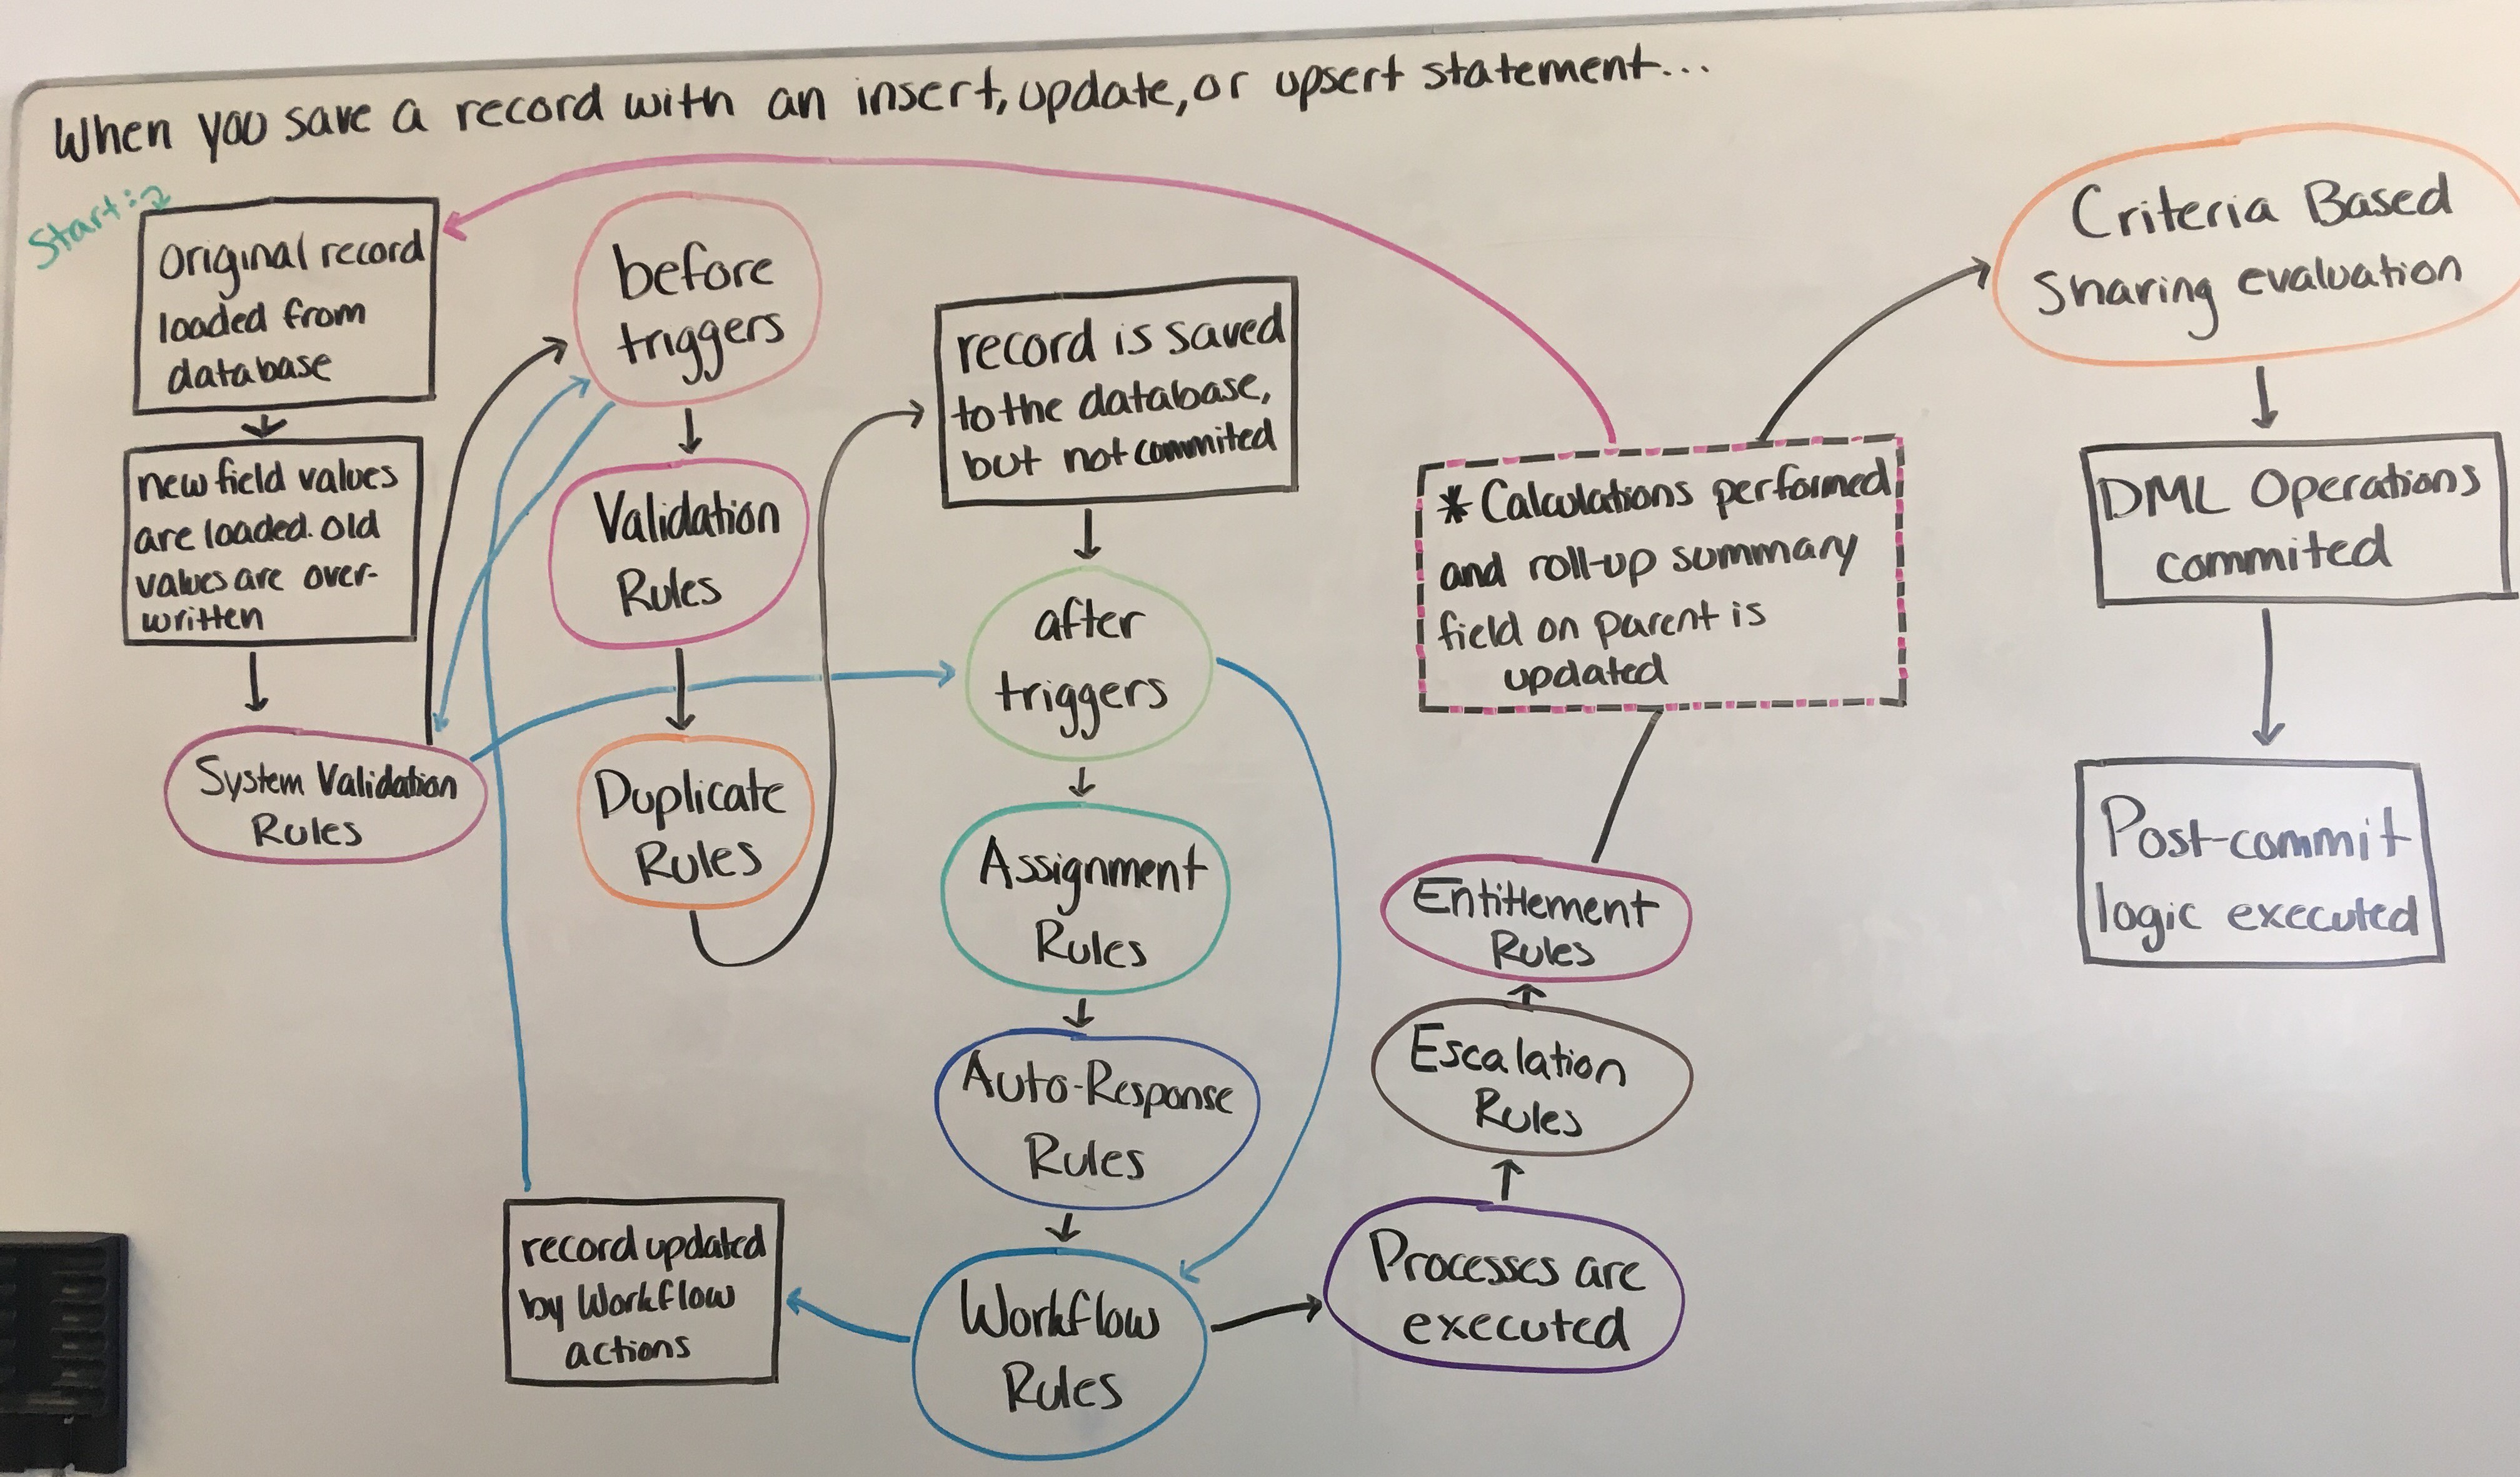 When you save a record with an insert, update, or upsert statement...
Start:
original record
loaded from
database
new field values
are loaded. old
values are over-
written
System Validation
Rules
before
triggers
Validation
Rules
Duplicate
Rules
record is saved
to the database,
but not commited
after
triggers
Assignment
Rules
Auto-Response
Rules
Workflow
Rules
record updated
by Workflow
actions
Processes are
executed
Escalation
Rules
Entitlement
Rules
* Calculations performed
and roll-up summary
field on parent is
updated
Criteria Based
Sharing evaluation
DML Operations
commited
Post-commit
logic executed